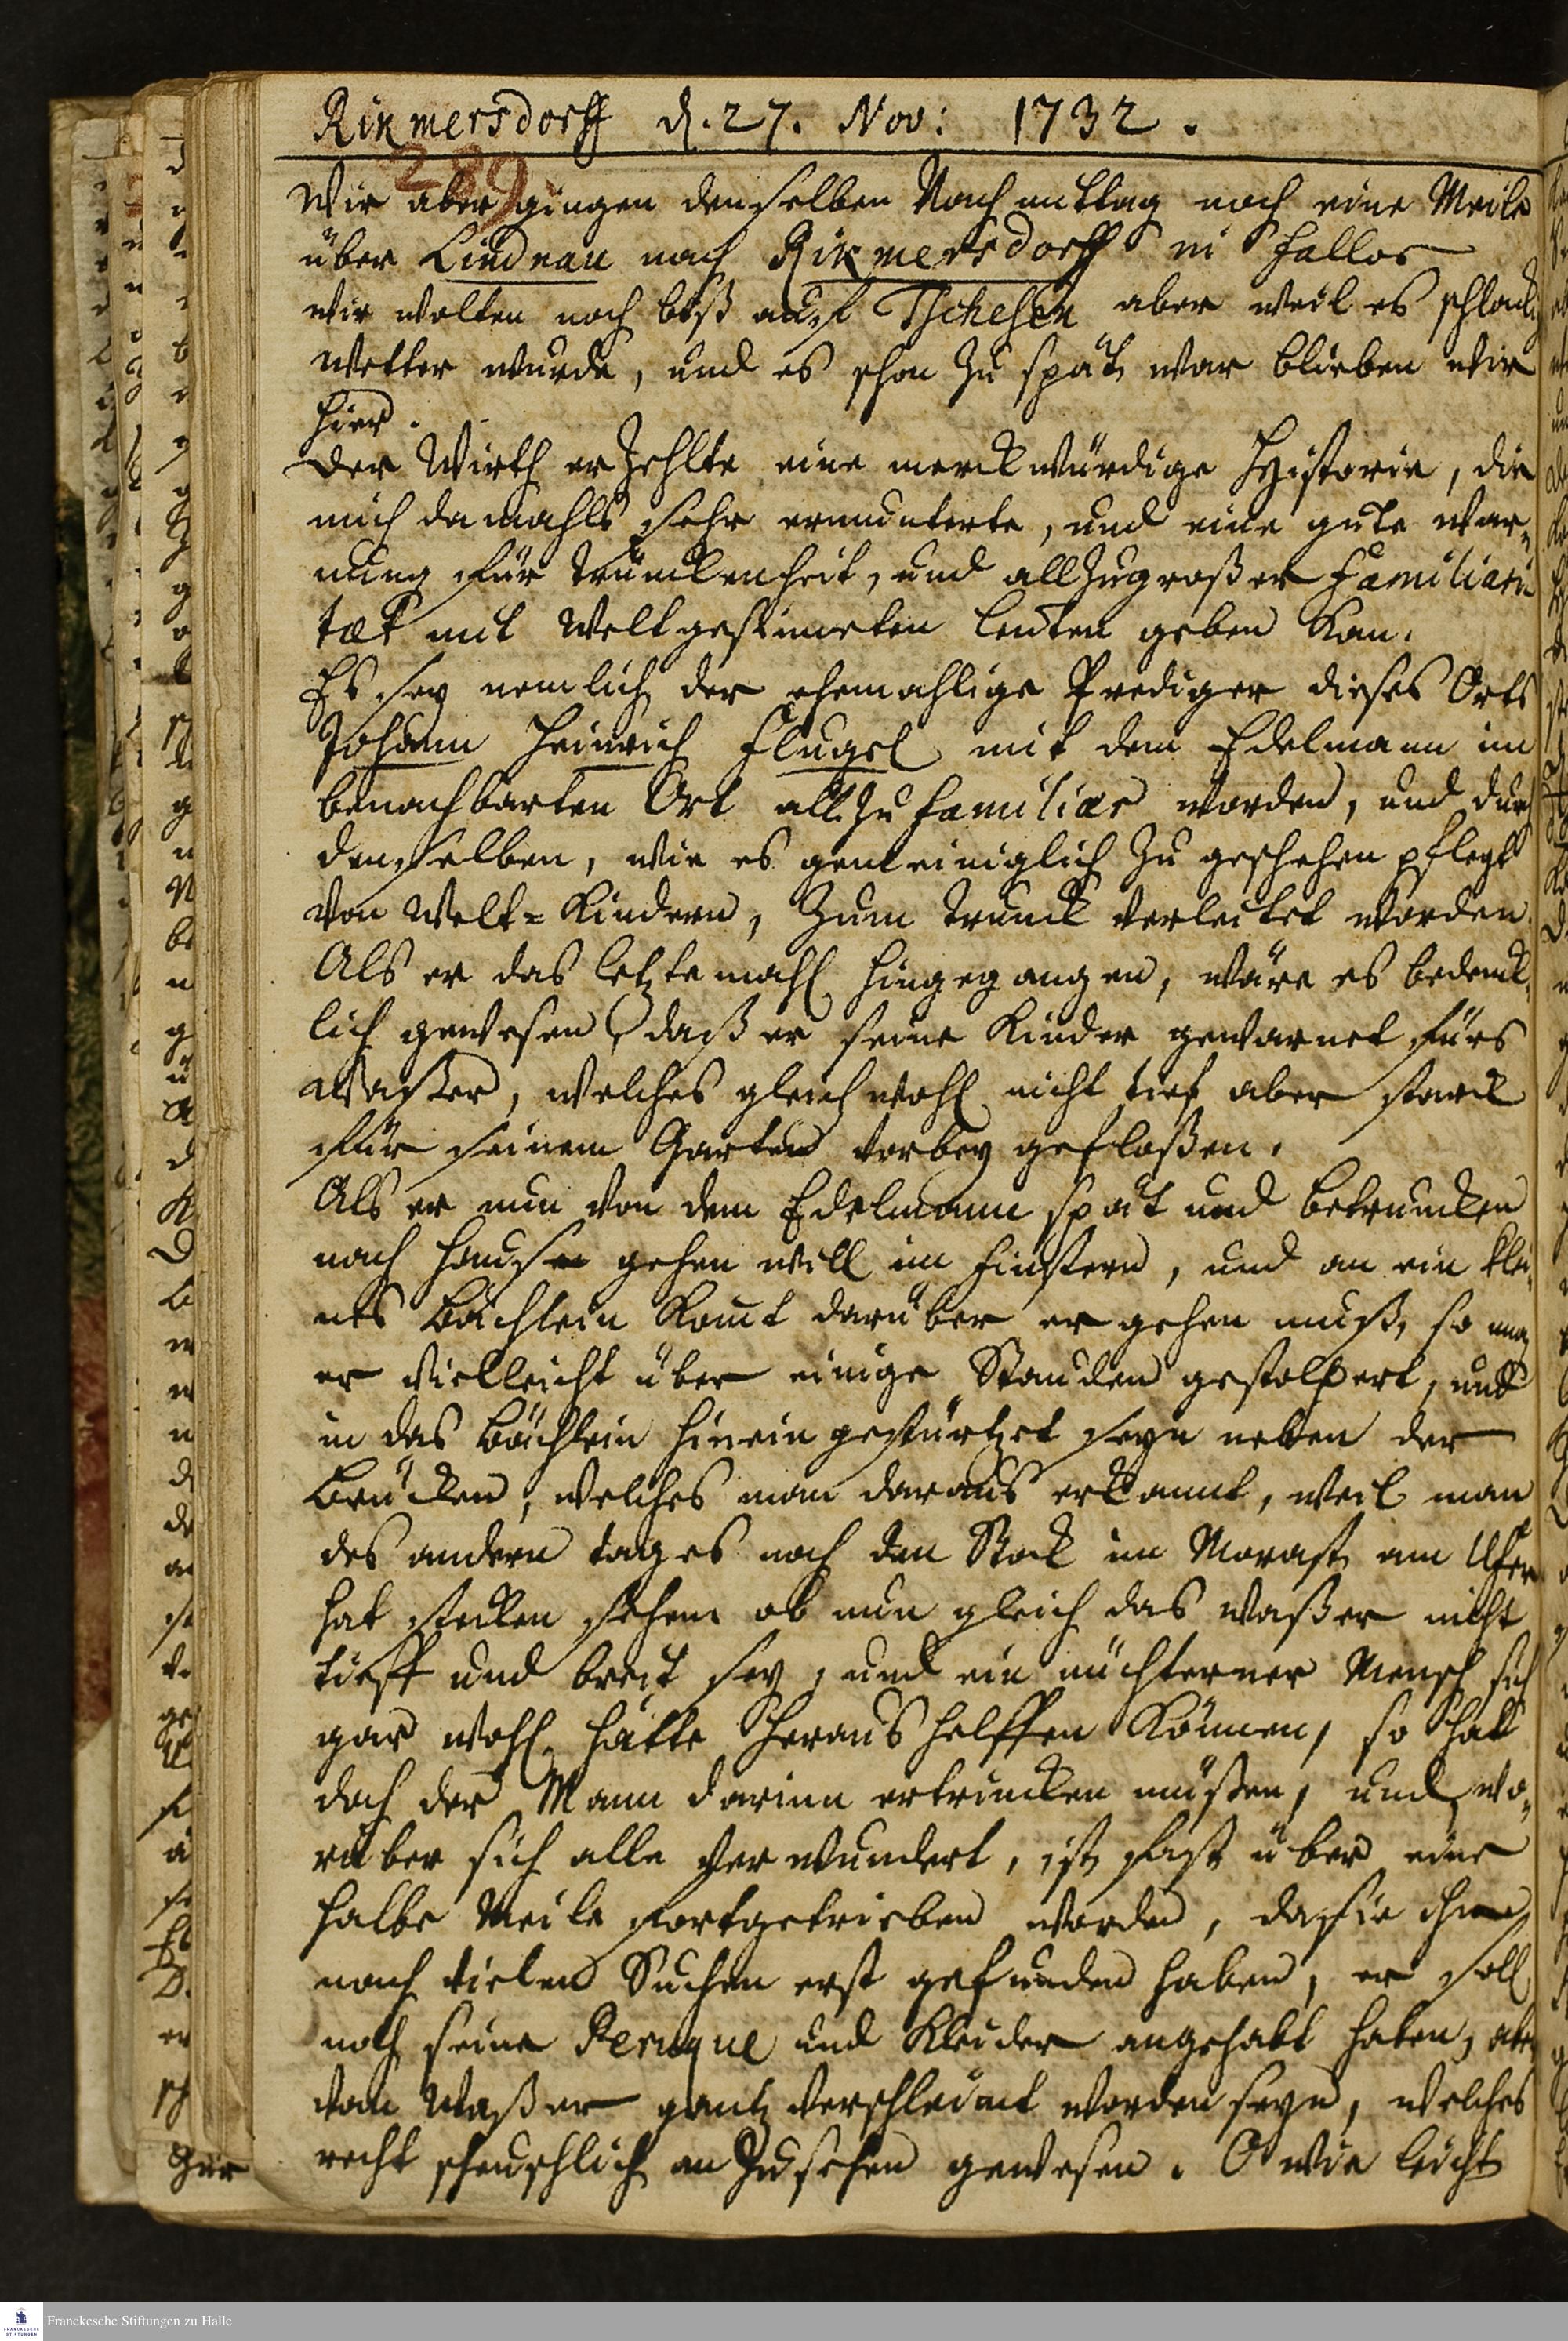 Rikmersdorff d. 27. Nov: 1732.
289
Wir aber gingen denselben Nachmittag noch eine Meile
über Lindnau nach Rikmersdorff in
wir wolten noch biß auf Tscheschen aber weil es schlack
wetter wurde, und es schon zu spät war blieben wir
hier.
Der Wirth erzehlte eine merckwürdige Historie, die
mich damahls sehr ermunterte, und eine gute War-
nung für Trunckenheit, und allzugroßer Familiari
tæt mit Weltgesinneten Leuten geben kan.
Es sey nemlich der ehemahlige Prediger dieses Orts
Johann Heinrich Flugel mit dem Edelmann im
benachbarten Ort allzu familiær worden, und durch
denselben, wie es gemeiniglich zu geschehen pflegt
von Welt-Kindern, zum Trunck verleitet worden.
Als er das letzte mahl hingegangen, wäre es bedenck-
lich gewesen, daß er seine Kinder gewarnet fürs
Waßer, welches gleichwohl nicht tief aber starck
für seinem Garten vorbey gefloßen.
Als er nun von dem Edelmann spät und betruncken
nach Hause gehen will im finstern, und an ein klei-
nes Bächlein komt darüber er gehen muß, so mag
er vielleicht über einige Stauden gestolpert, und
in das Bächlein hinein gestürtzet seyn neben der
Brücken, welches man daraus erkannt, weil man
des andern tages noch den Stock im Morast am Ufer
hat stecken sehen ob nun gleich das waßer nicht
tieff und breit sey, und ein nüchterner Mensch sich
gar wohl hätte heraus helffen können, so hat
doch der Mann darinn ertrincken müßen, und wo-
rüber sich alle verwundert, ist fast über eine
halbe Meile fortgetrieben worden, da sie ihn
nach vielen Suchen erst gefunden haben, er soll
noch seine Peruque und Kleider angehabt haben, aber
vom Waßer gantz verschleimt worden seyn, welches
recht scheuschlich anzusehen gewesen. O wie leicht
Franckesche Stiftungen zu Halle